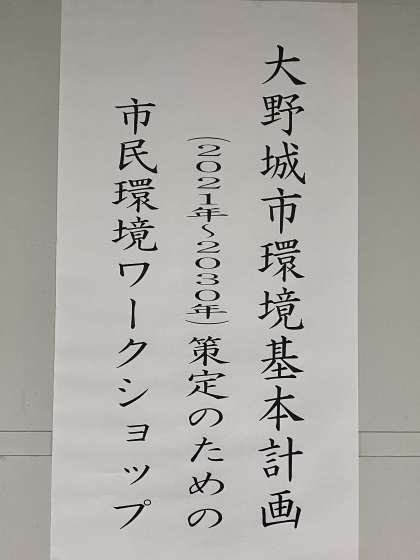 大野城市環境基本計画
(2021年~2030年)策定のための
市民環境ワークショップ